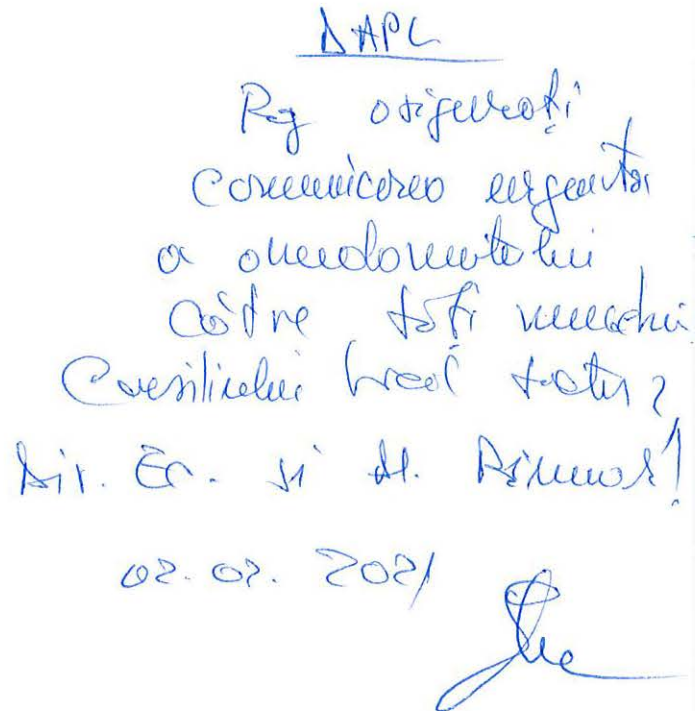 DAPL
Rog asigurați
comunicarea urgentă
a amendamentului
către toți membrii
Consiliului local
Dir. Ec. și dl. Primar!
02.02.2021